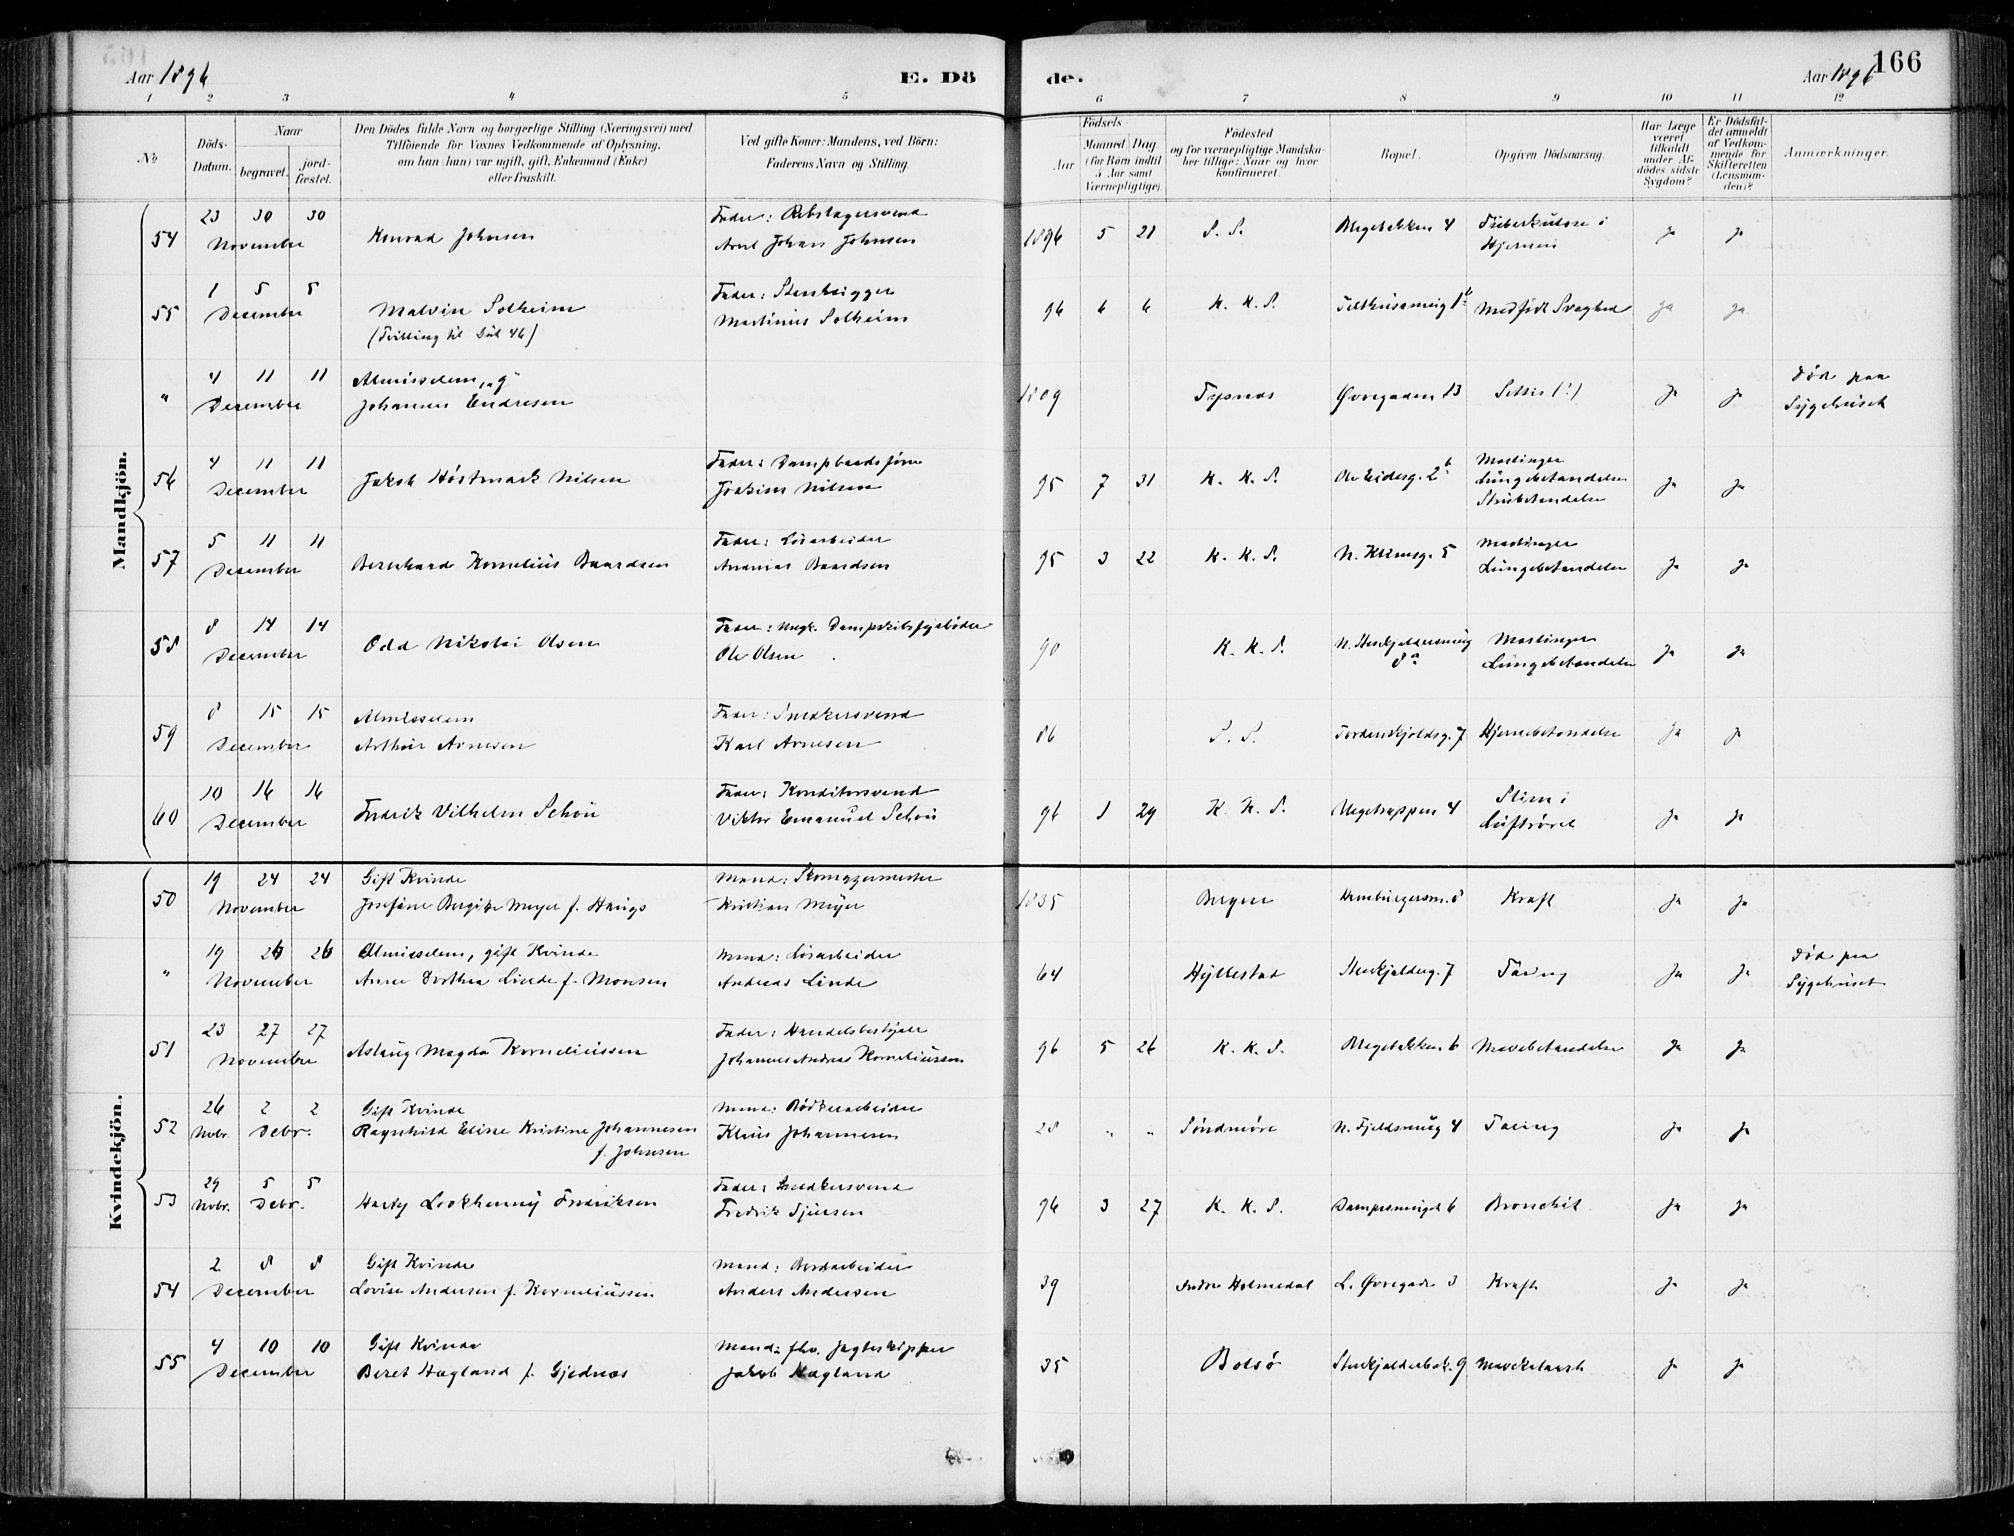 Aar 1896
E. Dö
de.
Aar 1896
166
1 2 3 4 5 6 7 8 9 10 11 12
No
Döds-Datum.
Naar
begravet.
jord-fæstet.
Den Dödes fulde Navn og borgerlige Stilling (Næringsvei) med
Tilföiende for Voxnes Vedkommende af Oplysning,
om han (hun) var ugift, gift, Enkemand (Enke)
eller fraskilt.
Ved gifte Koner: Mandens, ved Börn:
Faderens Navn og Stilling
Födsels
Aar
Maaned Dag
(for Börn indtil
5 Aar samt
Værnepligtige)
Födested
og for værnepligtige Mandska-
ber tillige: Naar og hvor
konfirmeret.
Bopæl.
Opgiven Dödsaarsag.
Har Læge
været
tilkaldt
under Af-
dödes sidste
Sygdom?
Er Dödsfal-
det anmeldt
af Vedkom-
mende for
Skifteretten
(Lensman-
den)?
Anmærkninger.
Mandkjön.
54 23 30 30 November Konrad Johnsen Fader: Rebslagersvend Johan Johnsen 1896 5 21 S. S. Øvregebakken 4 Tuberkulose i Hjernen ja ja
55 1 5 5 December Malvin Solheim (Tvilling til Døb 46) Fader: Stenhugger Martinus Solheim 96 6 6 K. K. S. Medfødt Svaghed ja ja
" 4 11 11 December Almisselem, "g" Johannes Endresen 1809 Tysnæs Øvregaden 13 ja ja Død paa Sygehuset
56 4 11 11 December Jakob Høstmark Nilsen Fader: Joakim Nilsen 95 7 31 K. K. S. Ole Eidesg. 2b Mæslinger Lungebetændelse Strubetændelse ja ja
57 5 11 11 December Bernhard Kornelius Baardsen Fader: Løsarbeider Ananias Baardsen 95 3 22 K. K. S. N. 5 Mæslinger Lungebetændelse ja ja
58 8 14 14 December Odd Nikolai Olsen Fader: Ole Olsen 90 K. K. S. 8a Mæslinger Lungebetændelse ja ja
59 8 15 15 December Almisselem Arthur Arnesen Fader: Snedkersvend Karl Arnesen 86 S. S. Tordenskjoldsg. 7 Hjernebetændelse ja ja
60 10 16 16 December Fredrik Vilhelm Schøn Fader: Konditorsvend Viktor Emanuel Schøn 96 1 29 K. K. S. 4 Slim i Luftrøret ja ja
Kvindekjön.
50 19 24 24 November Gift Kvinde Josefine Bergitte Meyer f. Haugs Mand: Skomagermester Kristian Meyer 1835 Bergen Hamburgersm. 8 Kræft ja ja
" 19 26 26 November Almisselem, gift Kvinde Anne Dorthea Linde f. Monsen Mand: Løsarbeider Andreas Linde 64 Hyllestad Stenkjelderg. 7 Tæring ja ja Død paa Sygehuset
51 23 27 27 November Aslaug Magda Korneliussen Fader: Handelsbestyrer Johannes Andreas Korneliussen 96 5 26 K. K. S. 6 Mavebetændelse ja ja
52 26 2 2 Novbr. Debr. Gift Kvinde Ragnhild Eline Kristine Johannesen f. Johnsen Mand: Bødkerarbeider Klaus Johannesen 28 " " Søndmøre N. Fjeldsmug 4 Tæring ja ja
53 29 5 5 Novbr. Debr. Fredriksen Fader: Snedkersvend Fredrik 96 3 27 K. K. S. 6 Bronchit ja ja
54 2 8 8 December Gift Kvinde Lovise Andersen f. Korneliussen Mand: Anders Andersen 39 Indre Holmedal L. Øvregade 3 Kræft ja ja
55 4 10 10 December Gift Kvinde Beret Hagland f. Gjednæs Mand: fhv. Jagteskipper Jakob Hagland 35 Bolsø Stenkjelderbak. 9 Mavekatarrh ja ja